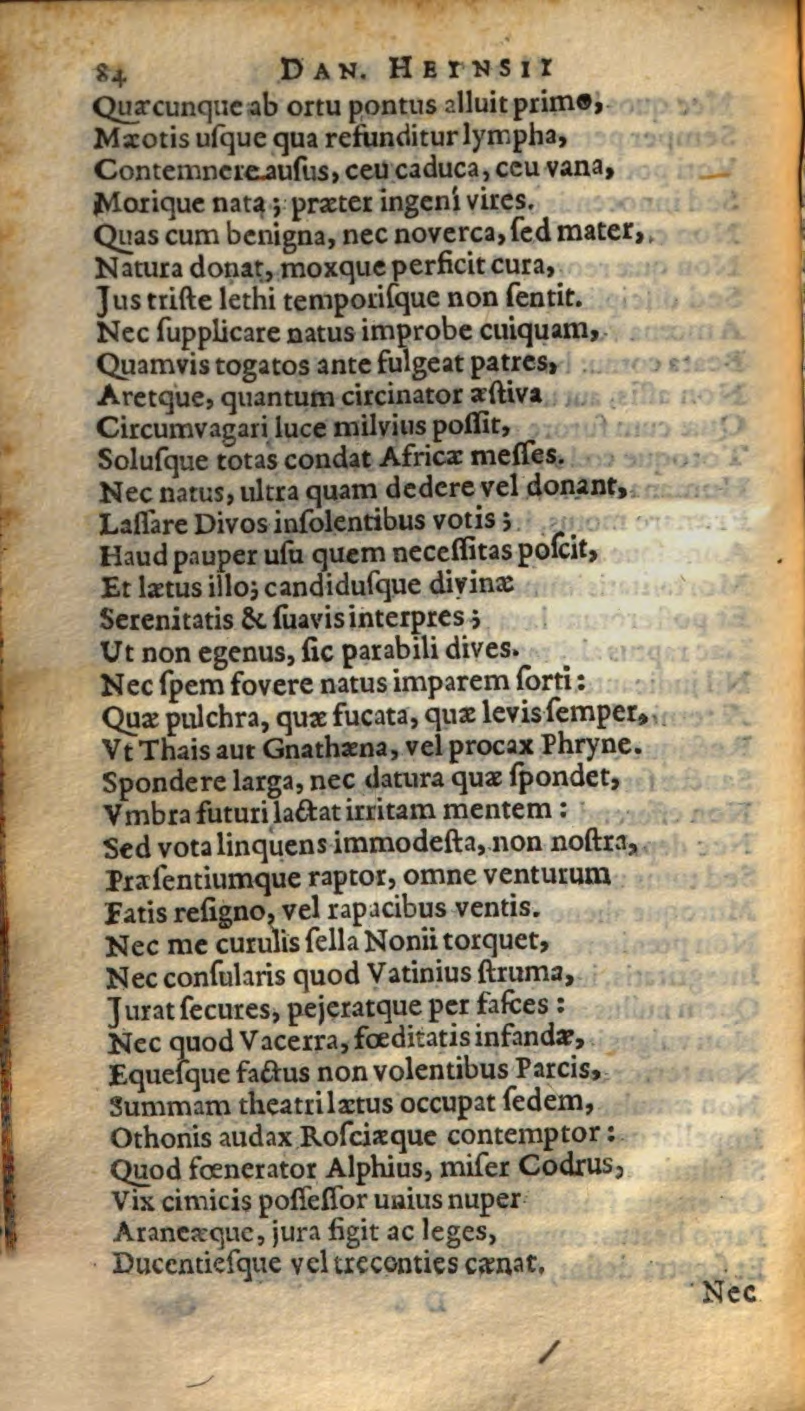 84 DAN. HEINSII
Quæcunque ab ortu pontus alluit primo,
Mæotis uſque qua refunditur lympha,
Contemnere auſus, ceu caduca, ceu vana,
Morique nata; præter ingenî vires.
Quas cum benigna, nec noverca, ſed mater,
Natura donat, moxque perficit cura,
Jus triſte lethi temporiſque non ſentit.
Nec ſupplicare natus improbe cuiquam,
Quamvis togatos ante fulgeat patres,
Aretque, quantum circinator æſtiva
Circumvagari luce milvius poſſit,
Soluſque totas condat Africæ meſſes.
Nec natus, ultra quam dedere vel donant,
Laſſare Divos inſolentibus votis;
Haud pauper uſu quem neceſſitas poſcit,
Et lætus illo; candiduſque divinæ
Serenitatis & ſuavis interpres;
Ut non egenus, ſic parabili dives.
Nec ſpem fovere natus imparem ſorti:
Quæ pulchra, quæ fucata, quæ levis ſemper,
Vt Thais aut Gnathæna, vel procax Phryne.
Spondere larga, nec datura quæ ſpondet,
Vmbra futuri lactat irritam mentem:
Sed vota linquens immodeſta, non noſtra,
Præſentiumque raptor, omne venturum
Fatis reſigno, vel rapacibus ventis.
Nec me curulis ſella Nonii torquet,
Nec conſularis quod Vatinius ſtruma,
Jurat ſecures, pejeratque per faſces:
Nec quod Vacerra, fœditatis infandæ,
Equeſque factus non volentibus Parcis,
Summam theatri lætus occupat ſedem,
Othonis audax Roſciæque contemptor:
Quod fœnerator Alphius, miſer Codrus,
Vix cimicis poſſeſſor unius nuper
Araneæque, jura figit ac leges,
Ducentieſque vel treconties cænat.
Nec